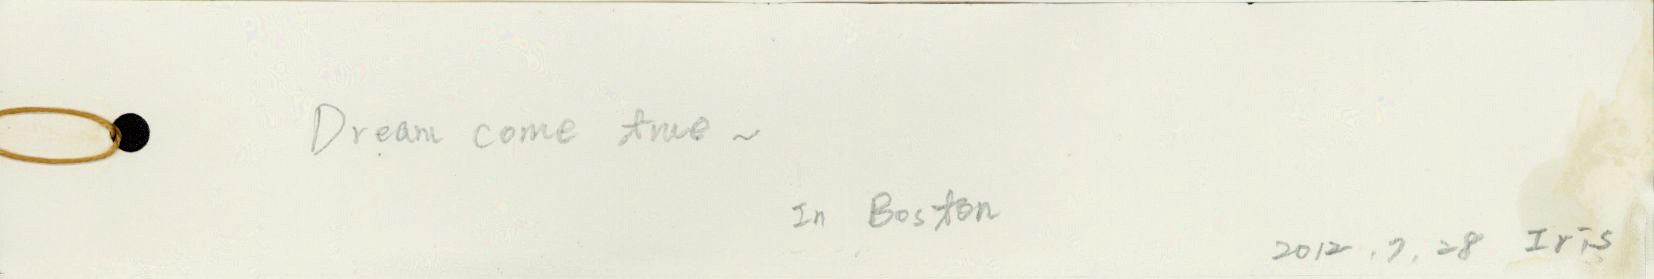 Dream come true ~
In Boston
2012.7.28 Iris